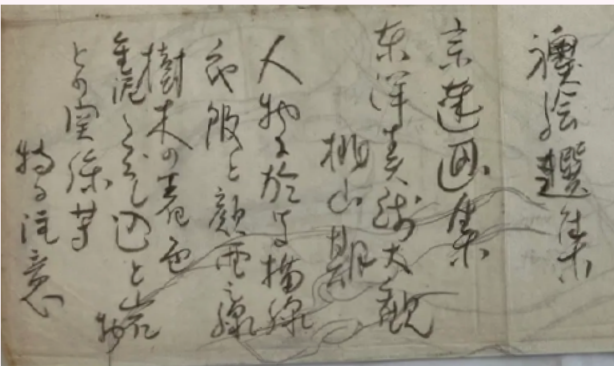 襖絵撰集
宗達画集
東洋美術大観
桃山期
人物に於ける描線
衣服と顔面の線
樹木の着色
金泥くどし込と岩物
との関係等
特に注意